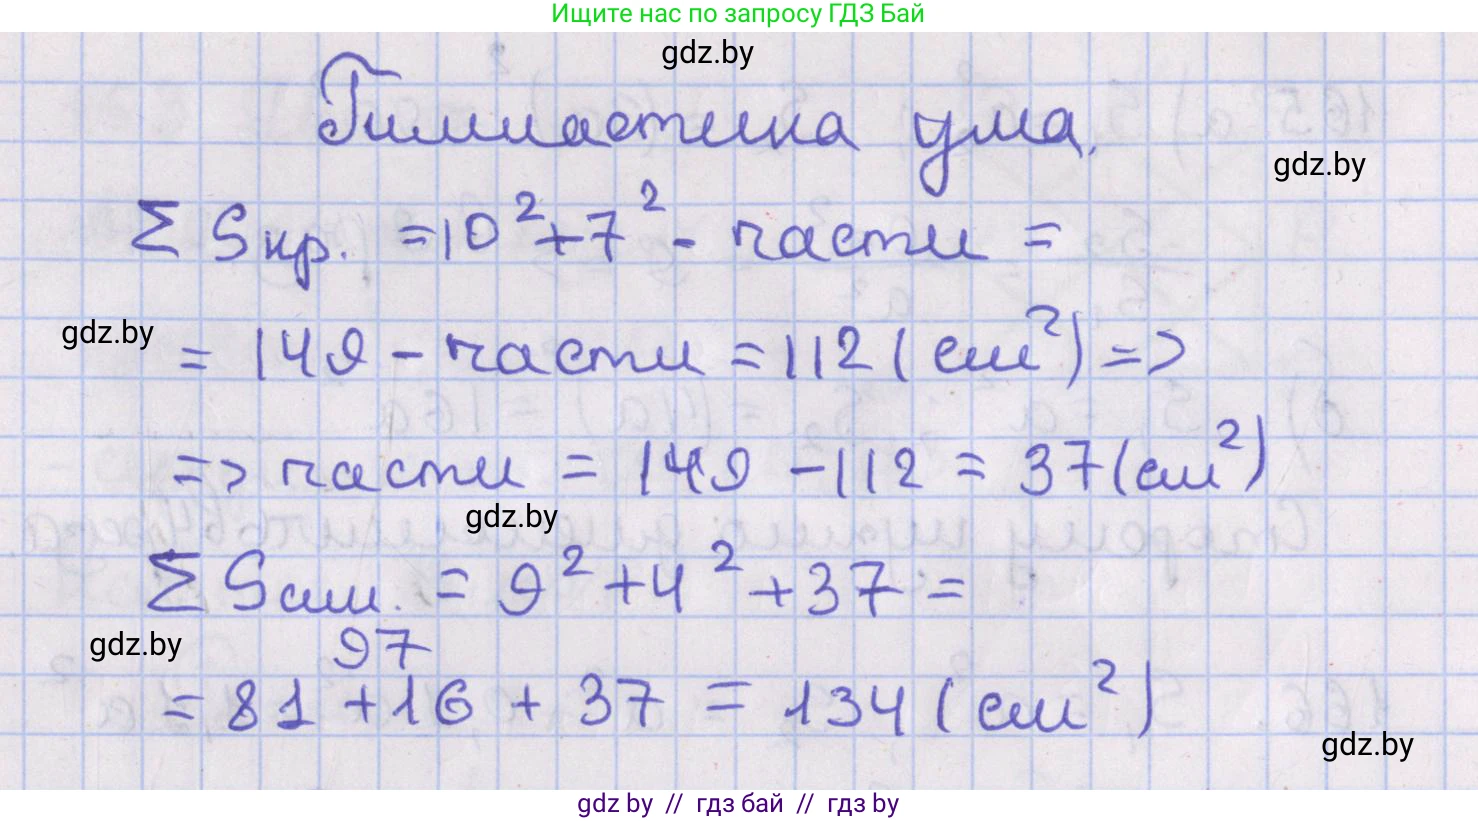 Ищите нас по запросу ГДЗ Бай
gdz.by
Гимнастика ума.
gdz.by
Σ Sкр. = 10² + 7² - части =
gdz.by
= 149 - части = 112 (см²) =>
=> части = 149 - 112 = 37 (см²)
gdz.by
Σ Sсин. = 9² + 4² + 37 =
gdz.by
97
= 81 + 16 + 37 = 134 (см²)
gdz.by
gdz by // гдз бай // гдз by